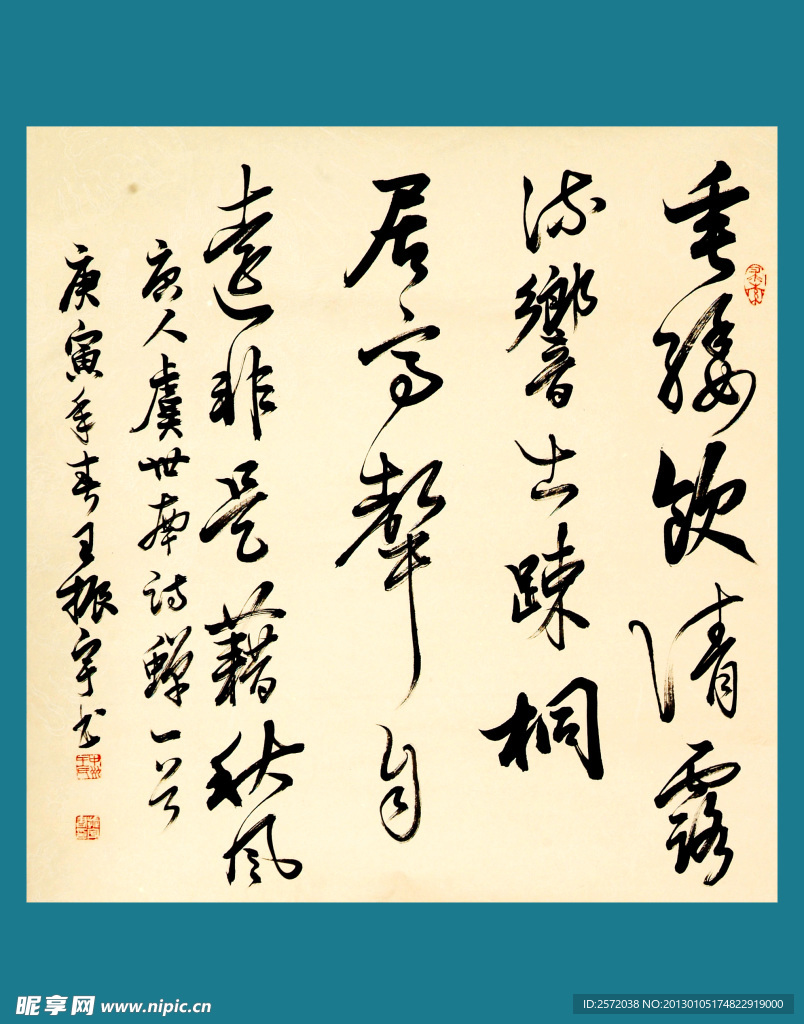 垂緌飲清露
流響出踈桐
居高聲自
遠非是藉秋風
唐人虞世南詩蟬一首
庚寅年春王振宇书
昵享网 www.nipic.cn
ID:2572038 NO:20130105174822919000